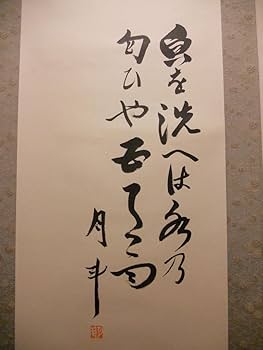 魚を洗へは水乃
匂ひや五月雨
月斗